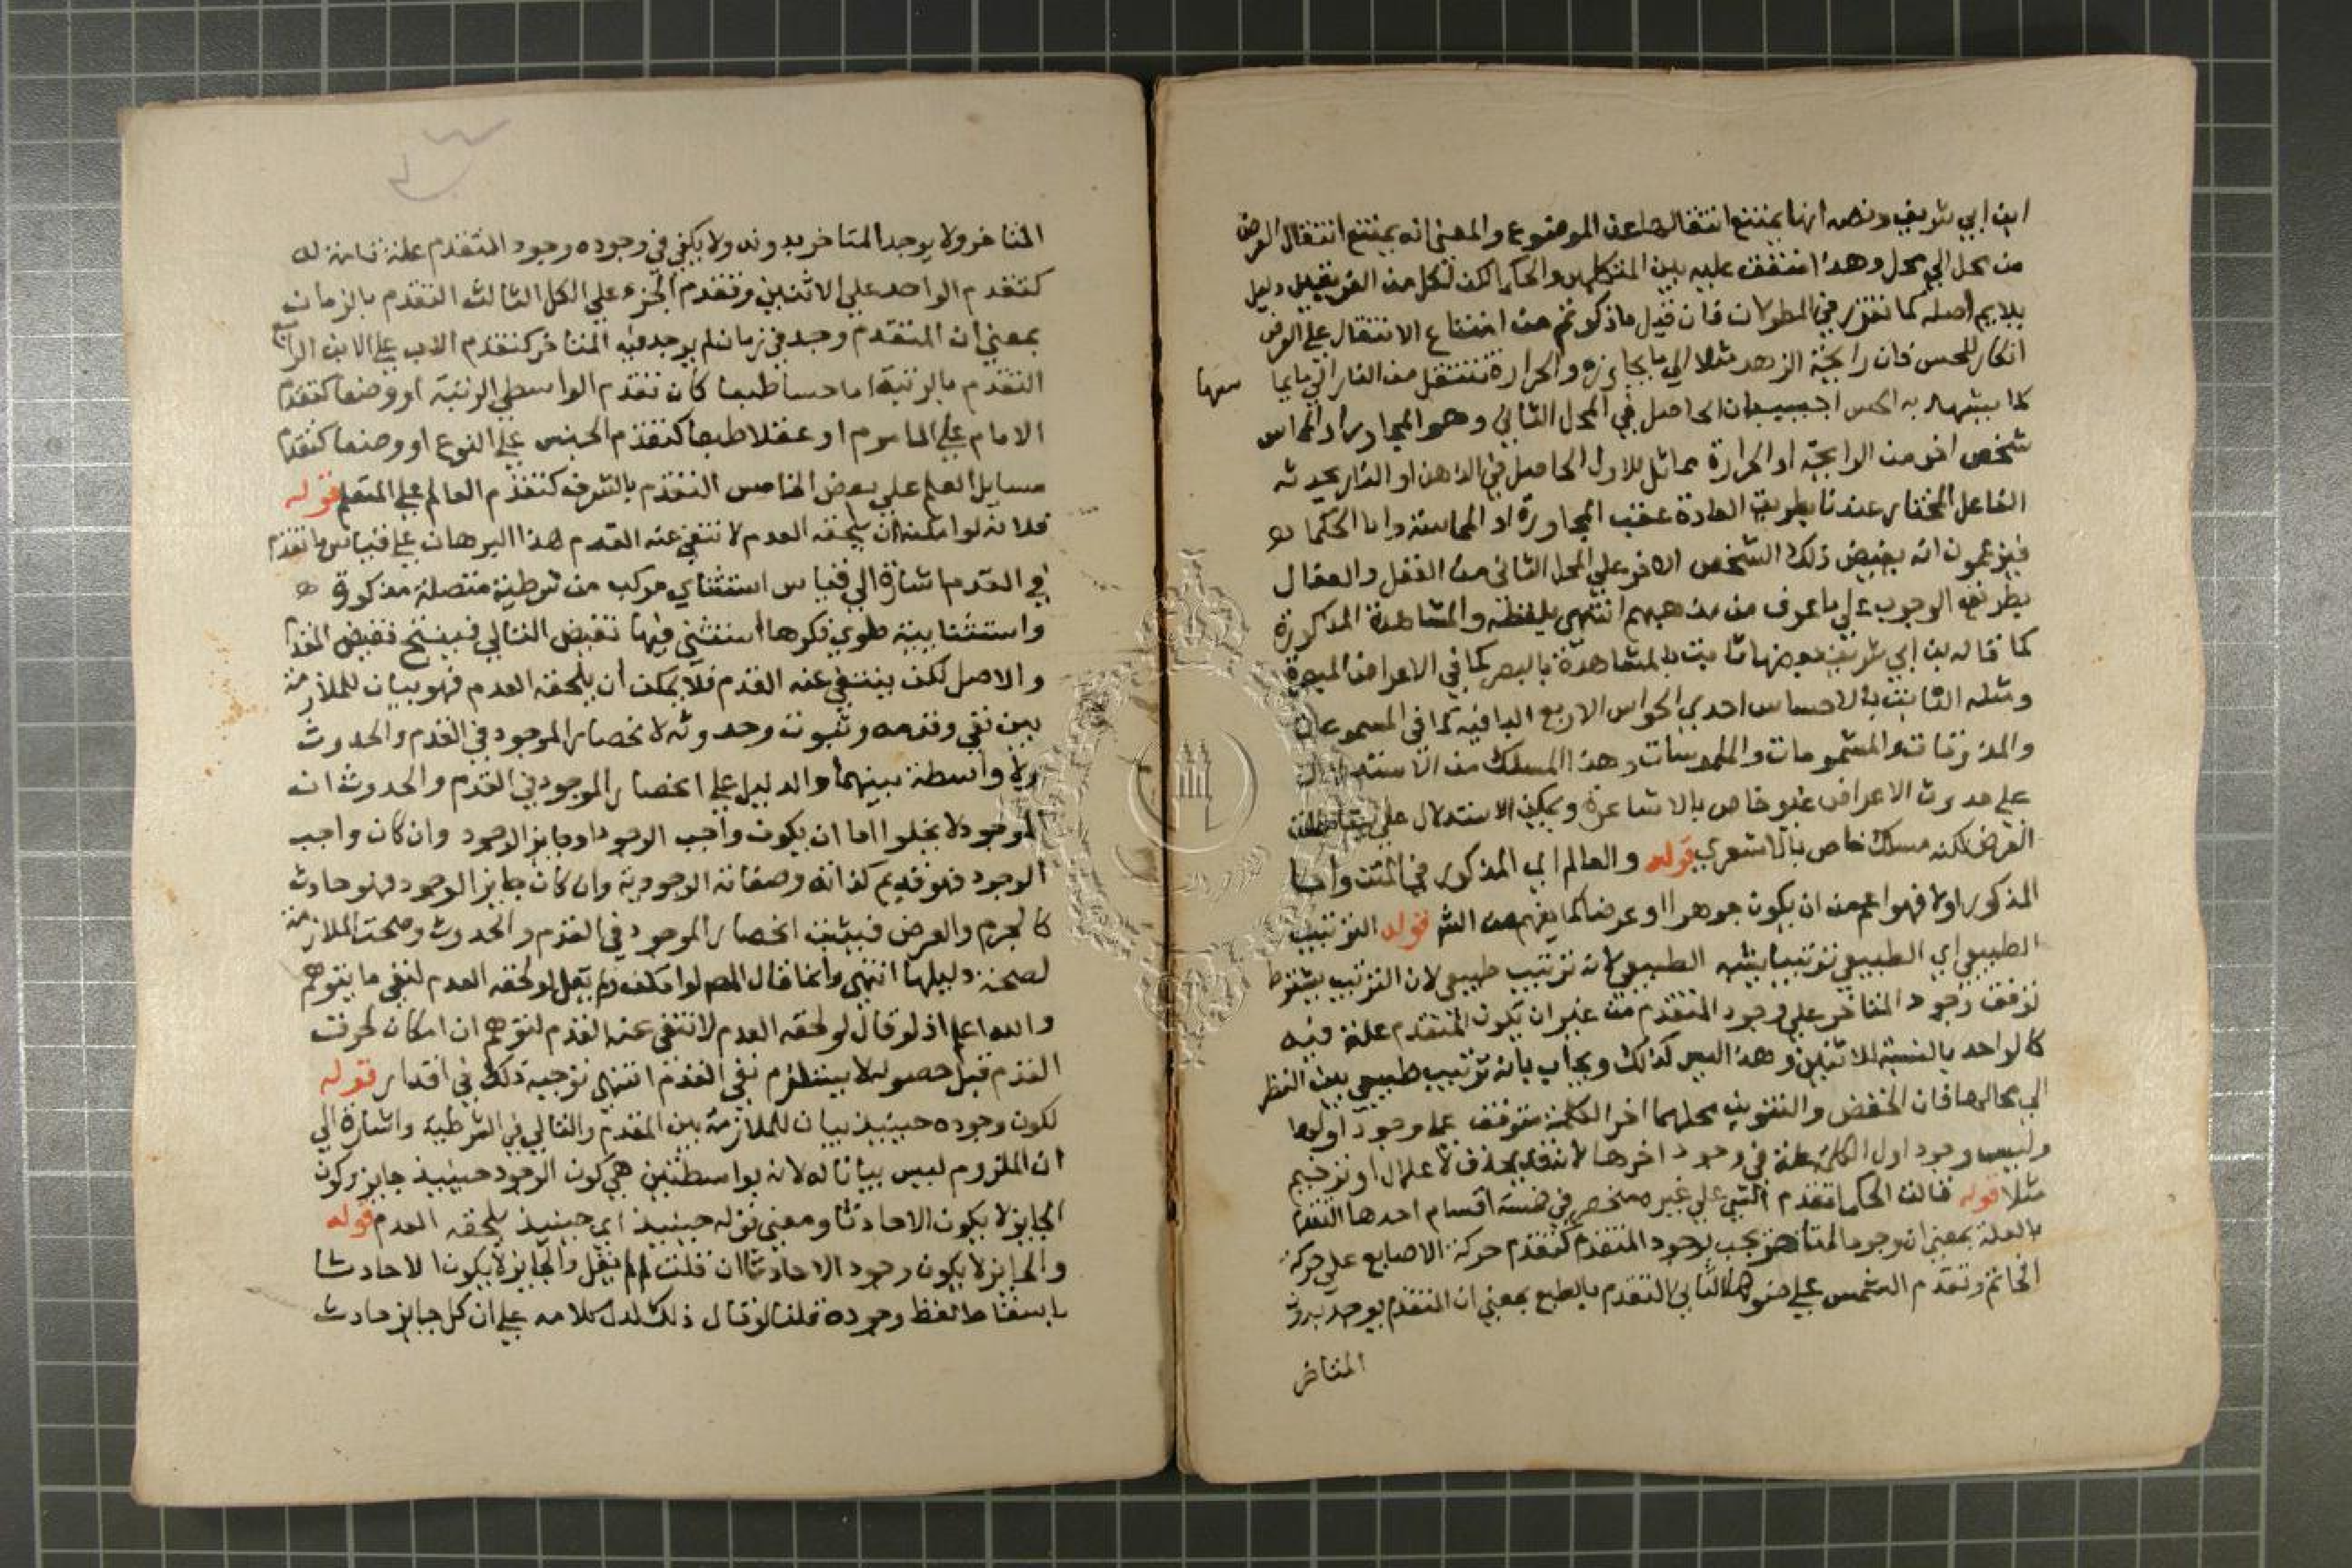 ابن ابي شريف ونصه انها يمتنع انتقالها عن الموضوع والمعني انه يمتنع انتقال العرض
من محل الي محل وهذا متفق عليه بين المتكلمين والحكما لكن لكل من الفريقين دليل
يلايم اصله كما تقرر في المطولات فان قيل ما ذكرتم من امتناع الانتقال علي العرض
انكار للحس فان رايحة الزهد مثلا الي ما يجاوره والحرارة تنتقل من النار الي ما يماسها
كما يشهد به الحس اجيب بان الحاصل في المحل الثاني وهو المجاور او المماس
شخص اخر من الرايحة او الحرارة مماثل للاول الحاصل في الذهن او النار يحدثه
الفاعل المختار عندنا بطريق العادة عقب المجاورة او المماسة واما الحكما
فيزعمون انه يفيض ذلك الشخص الاخر علي المحل الثاني من العقل والفعال
بطريق الوجوب علي ما عرف من مذهبهم انتهي بلفظه والمشاهدة المذكورة
كما قاله بن ابي شريف بعضها ثابت بالمشاهدة بالبصر كما في الاعراض المبصرة
ومثله الثابت بالاحساس احدي الحواس الاربع الباقية كما في المسموعات
والمذوقات والمشمومات والملموسات وهذا المسلك من الاستدلال
علي حدوث الاعراض غير خاص بالاشاعرة ويمكن الاستدلال علي
العرض لكنه مسلك خاص بالاشعري قوله والعالم اي المذكور في المتن واما
المذكور اولا فهو اعم من ان يكون جوهرا او عرضا كما يفهم من الش قوله الترتيب
الطبيعي اي الطبيعي ترتيبا يشبه الطبيعي لانه ترتيب طبيعي لان الترتيب يشترط
توقف وجود المتاخر علي وجود المتقدم من غير ان يكون المتقدم علة فيه
كالواحد بالنسبة للاثنين وهذا ليس كذلك ويجاب بانه ترتيب طبيعي بين النظر
الي محالها فان الخفض والتنوين محلهما اخر الكلمة متوقف علي وجود اولها
وليس وجود اول الكلمة علة في وجود اخرها لانتقاله بحذف لاعلال او ترخيم
مثلا قوله قالت الحكما تقدم الشي علي غيره منحصر في خمسة اقسام احدها التقدم
بالعلة بمعني ان وجود المتاخر يجب بوجود المتقدم كتقدم حركة الاصابع علي حركة
الخاتم وتقدم الشمس علي ضوئها الثاني التقدم بالطبع بمعني ان المتقدم يوجد بدون
المتاخر
المتاخر ولا يوجد المتاخر بدونه ولا يكفي في وجوده وجود المتقدم علة تامة له
كتقدم الواحد علي الاثنين وتقدم الجزء علي الكل الثالث التقدم بالزمان
بمعني ان المتقدم وجد في زمان لم يوجد فيه المتاخر كتقدم الاب علي الابن الرابع
التقدم بالرتبة اما حسا طبعا كان تقدم الواسطي الرتبة او وضعا كتقدم
الامام علي الماموم او عقلا طبعا كتقدم الجنس علي النوع او وضعا كتقدم
مسايل العلم علي بعض الخامس التقدم بالشرف كتقدم العالم علي المتعلم قوله
فلانه لو امكن ان يلحقه العدم لانتفي عنه القدم هذا البرهان علي قياس ما تقدم
في القدم اشارة الي قياس استثنائي مركب من شرطية متصلة مذكورة
واستثنايية طوي ذكرها استثني فيها نقيض التالي فينتج نقيض المقدم
والاصل لكن ينتفي عنه القدم فلا يمكن ان يلحقه العدم فهو بيان للملازمة
بين نفي وقدمه وثبوت وحدوثه لانحصار الموجود في القدم والحدوث
ولا واسطة بينهما والدليل علي انحصار الموجود في القدم والحدوث ان
الموجود لا يخلوا اما ان يكون واجب الوجود او جايز الوجود وان كان واجب
الوجود فهو قديم كذاته وصفاته الوجودية وان كان جايز الوجود فهو حادث
كالجرم والعرض فيثبت انحصار الموجود في القدم والحدوث وصحت الملازمة
لصحة دليلها انتهي وانما قال المص لو امكن ولم يقل لو لحقه العدم لنفي ما يتوهم
والله اعلم اذ لو قال لو لحقه العدم لانتفي عنه القدم لتوهم ان امكان لحوقت
القدم قبل حصوله لا يستلزم نفي القدم انتهي توجيه ذلك في اقدار قوله
لكون وجوده حينيذ بيان للملازمة بين المقدم والتالي في الشرطية واشارة الي
ان الملزوم ليس بيانا له لانه بواسطتين هي كون الوجود حينيذ جايز وكون
الجايز لا يكون الا حادثا ومعني قوله حينيذ اي حينيذ يلحقه العدم قوله
والجايز لا يكون وجود الا حادثا ان قلت لم لم يقل والجايز لا يكون الا حادثا
باسقاط لفظ وجوده قلنا لو قال ذلك لدل كلامه علي ان كل جايز حادث